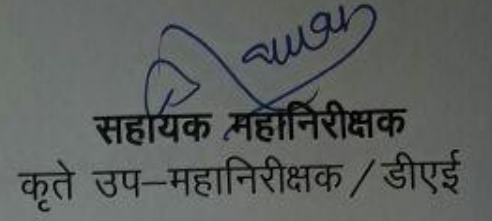 सहायक महानिरीक्षक
कृते उप–महानिरीक्षक / डीएई